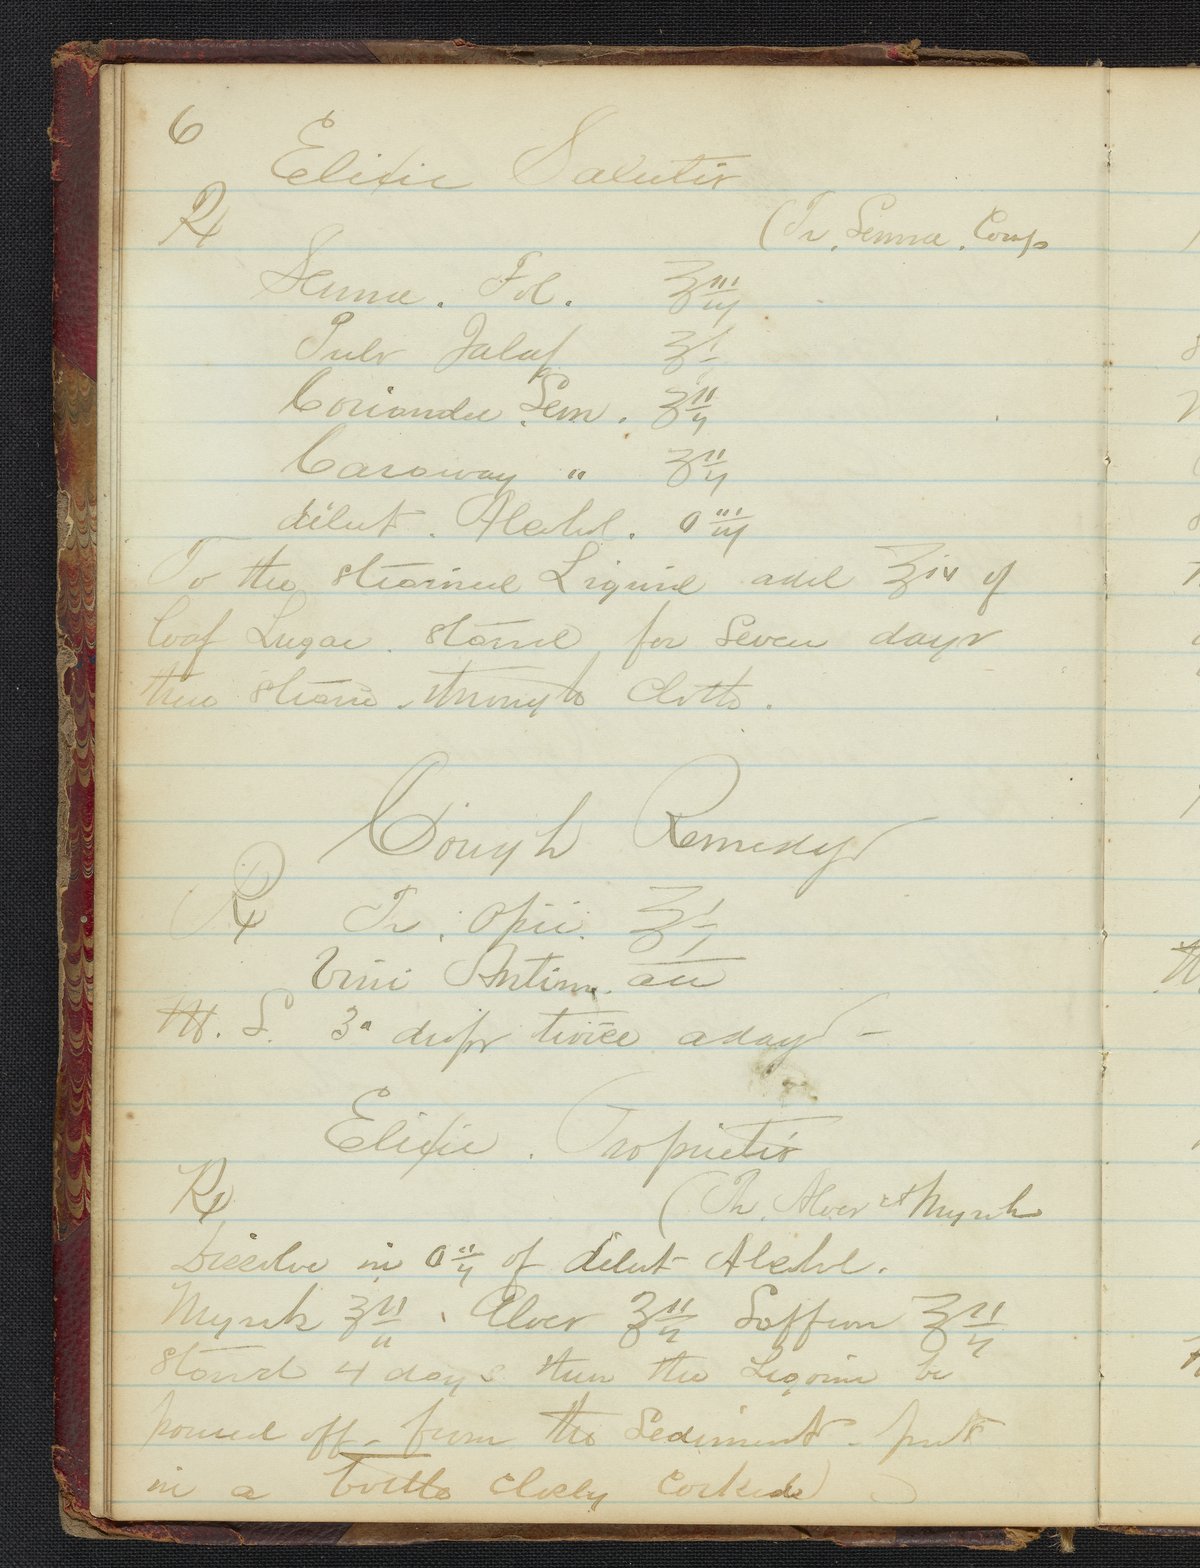 6
Elixir Salutis
℞ (Tr. Sennae. Comp
Sennae. Fol. ℥iij
Pulv Jalap ℥j
Coriander Sem. ℥ij
Caraway " ℥ij
dilut. Alcohol. O iij
To the strained Liquid add ℥iv of
loaf Sugar. stand for Seven days
then strain through cloth.
Cough Remedy
℞ Tr. Opii. ℥j
Vini Antim. aa
M. S. drops twice a day -
Elixir. Proprietis
℞ (Tr. Aloes et Myrrh
Dissolve in O ij of dilut Alcohol.
Myrrh ℥ij. Aloes ℥ij Saffron ℥ij
Stand 4 days then the Liquid be
poured off from the Sediment - put
in a bottle closely corked